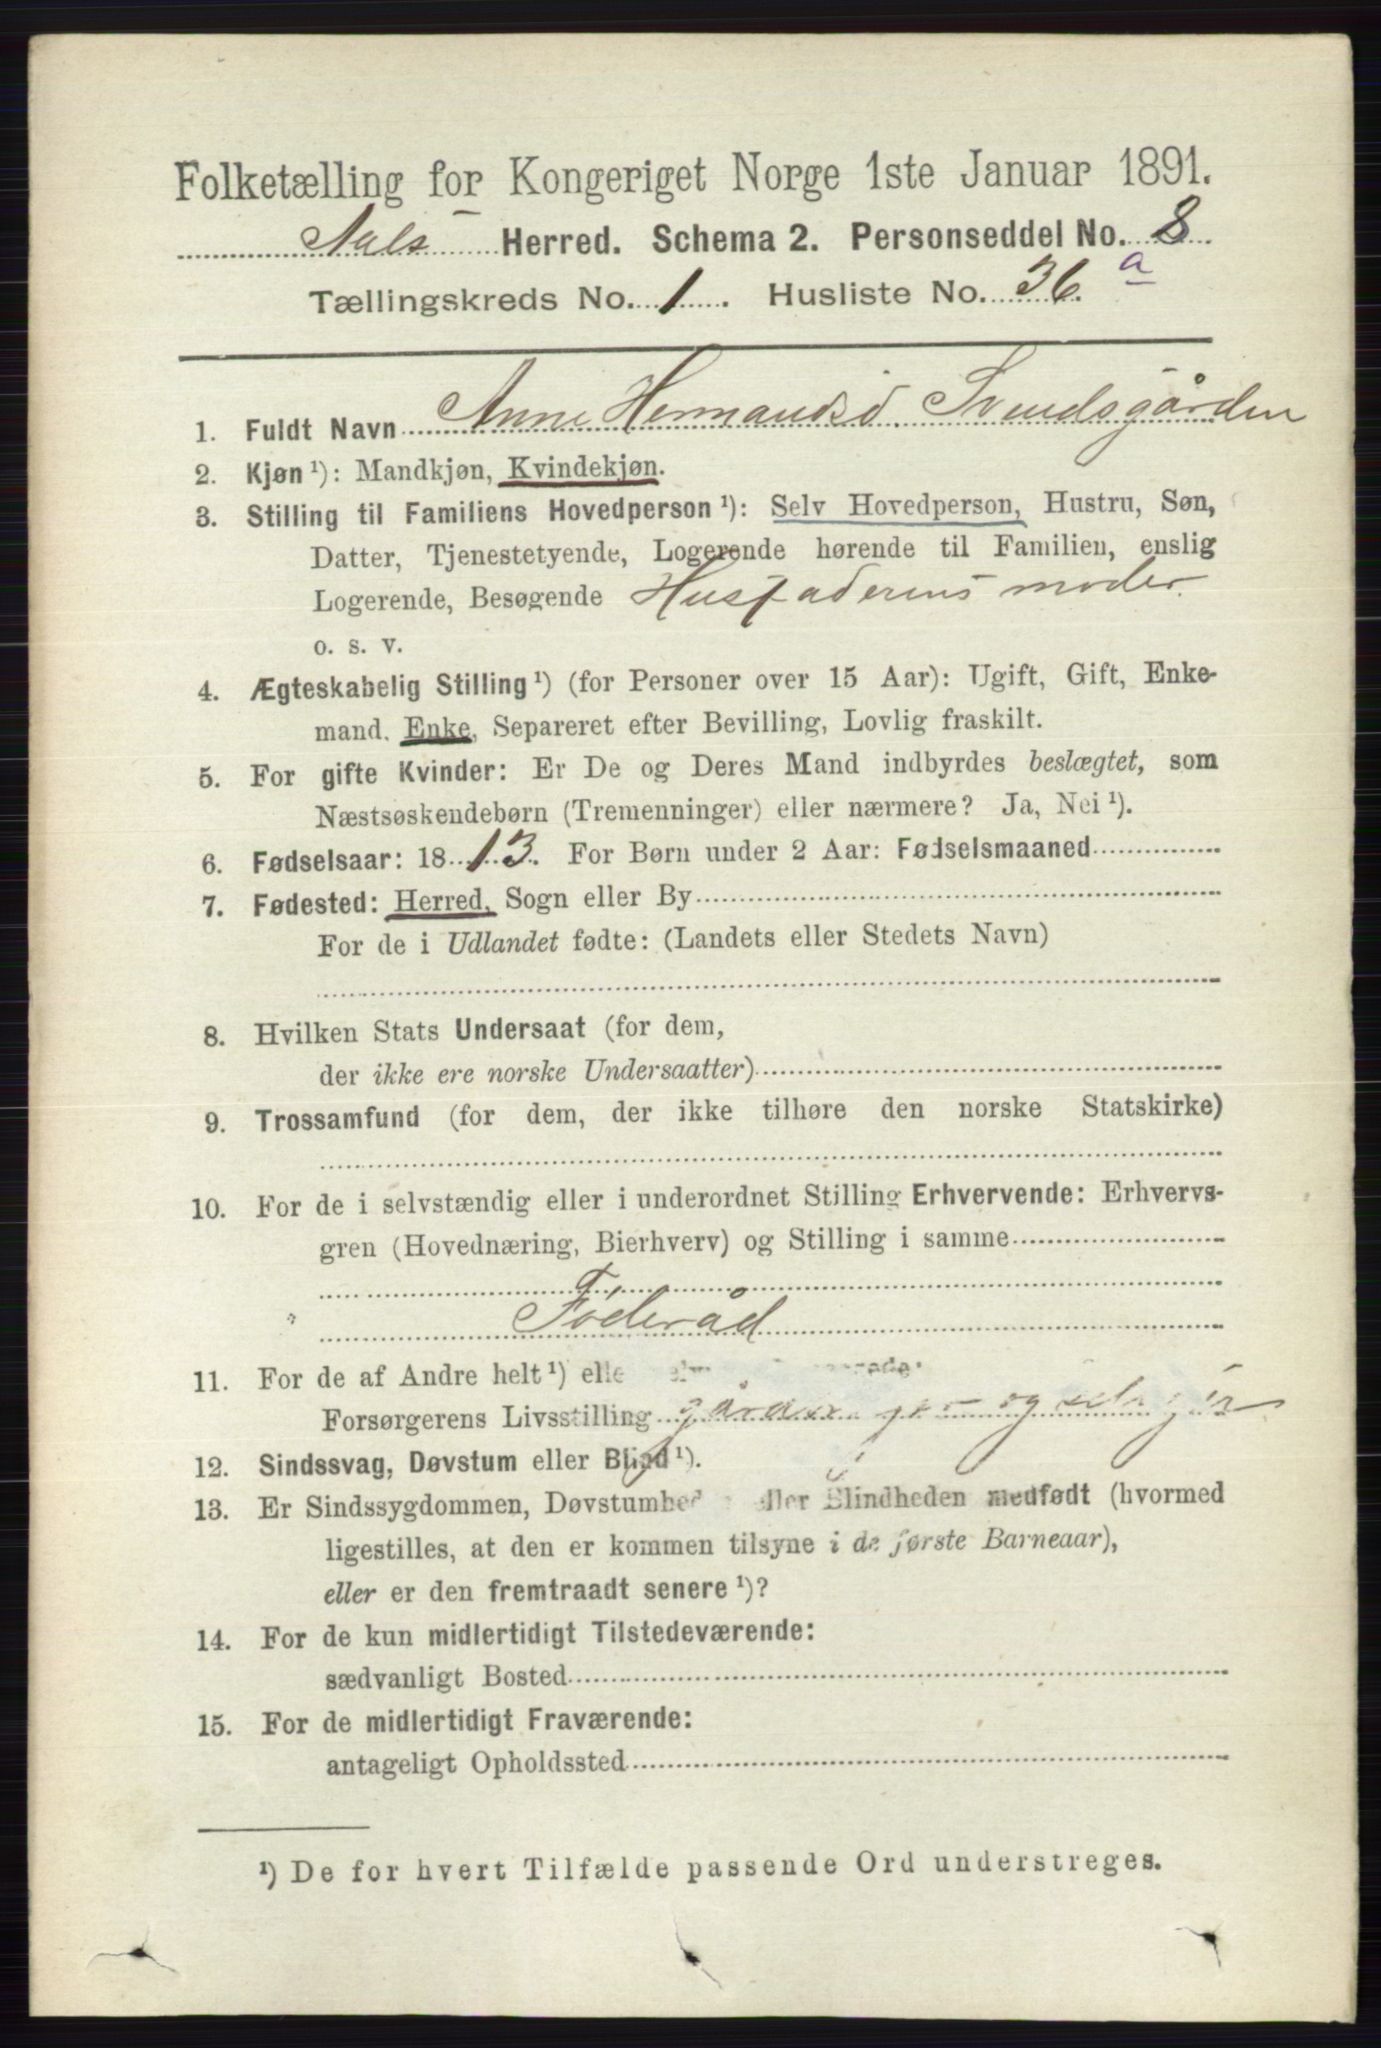 Folketælling for Kongeriget Norge 1ste Januar 1891.
Aals Herred. Schema 2. Personseddel No. 8
Tællingskreds No. 1. Husliste No. 36. a
1. Fuldt Navn Anne Hermandsd. Svendsgården
2. Kjøn ¹): Mandkjøn, Kvindekjøn.
3. Stilling til Familiens Hovedperson ¹): Selv Hovedperson, Hustru, Søn,
Datter, Tjenestetyende, Logerende hørende til Familien, enslig
Logerende, Besøgende Husfaderens moder.
o. s. v.
4. Ægteskabelig Stilling ¹) (for Personer over 15 Aar): Ugift, Gift, Enke-
mand, Enke, Separeret efter Bevilling, Lovlig fraskilt.
5. For gifte Kvinder: Er De og Deres Mand indbyrdes beslægtet, som
Næstsøskendebørn (Tremenninger) eller nærmere? Ja, Nei ¹).
6. Fødselsaar: 1813. For Børn under 2 Aar: Fødselsmaaned
7. Fødested: Herred, Sogn eller By
For de i Udlandet fødte: (Landets eller Stedets Navn)
8. Hvilken Stats Undersaat (for dem,
der ikke ere norske Undersaatter)
9. Trossamfund (for dem, der ikke tilhøre den norske Statskirke)
10. For de i selvstændig eller i underordnet Stilling Erhvervende: Erhvervs-
gren (Hovednæring, Bierhverv) og Stilling i samme
Føderåd
11. For de af Andre helt ¹) elle
Forsørgerens Livsstilling
12. Sindssvag, Døvstum eller Blind ¹).
13. Er Sindssygdommen, Døvstumhed eller Blindheden medfødt (hvormed
ligestilles, at den er kommen tilsyne i de første Barneaar),
eller er den fremtraadt senere ¹)?
14. For de kun midlertidigt Tilstedeværende:
sædvanligt Bosted
15. For de midlertidigt Fraværende:
antageligt Opholdssted
¹) De for hvert Tilfælde passende Ord understreges.